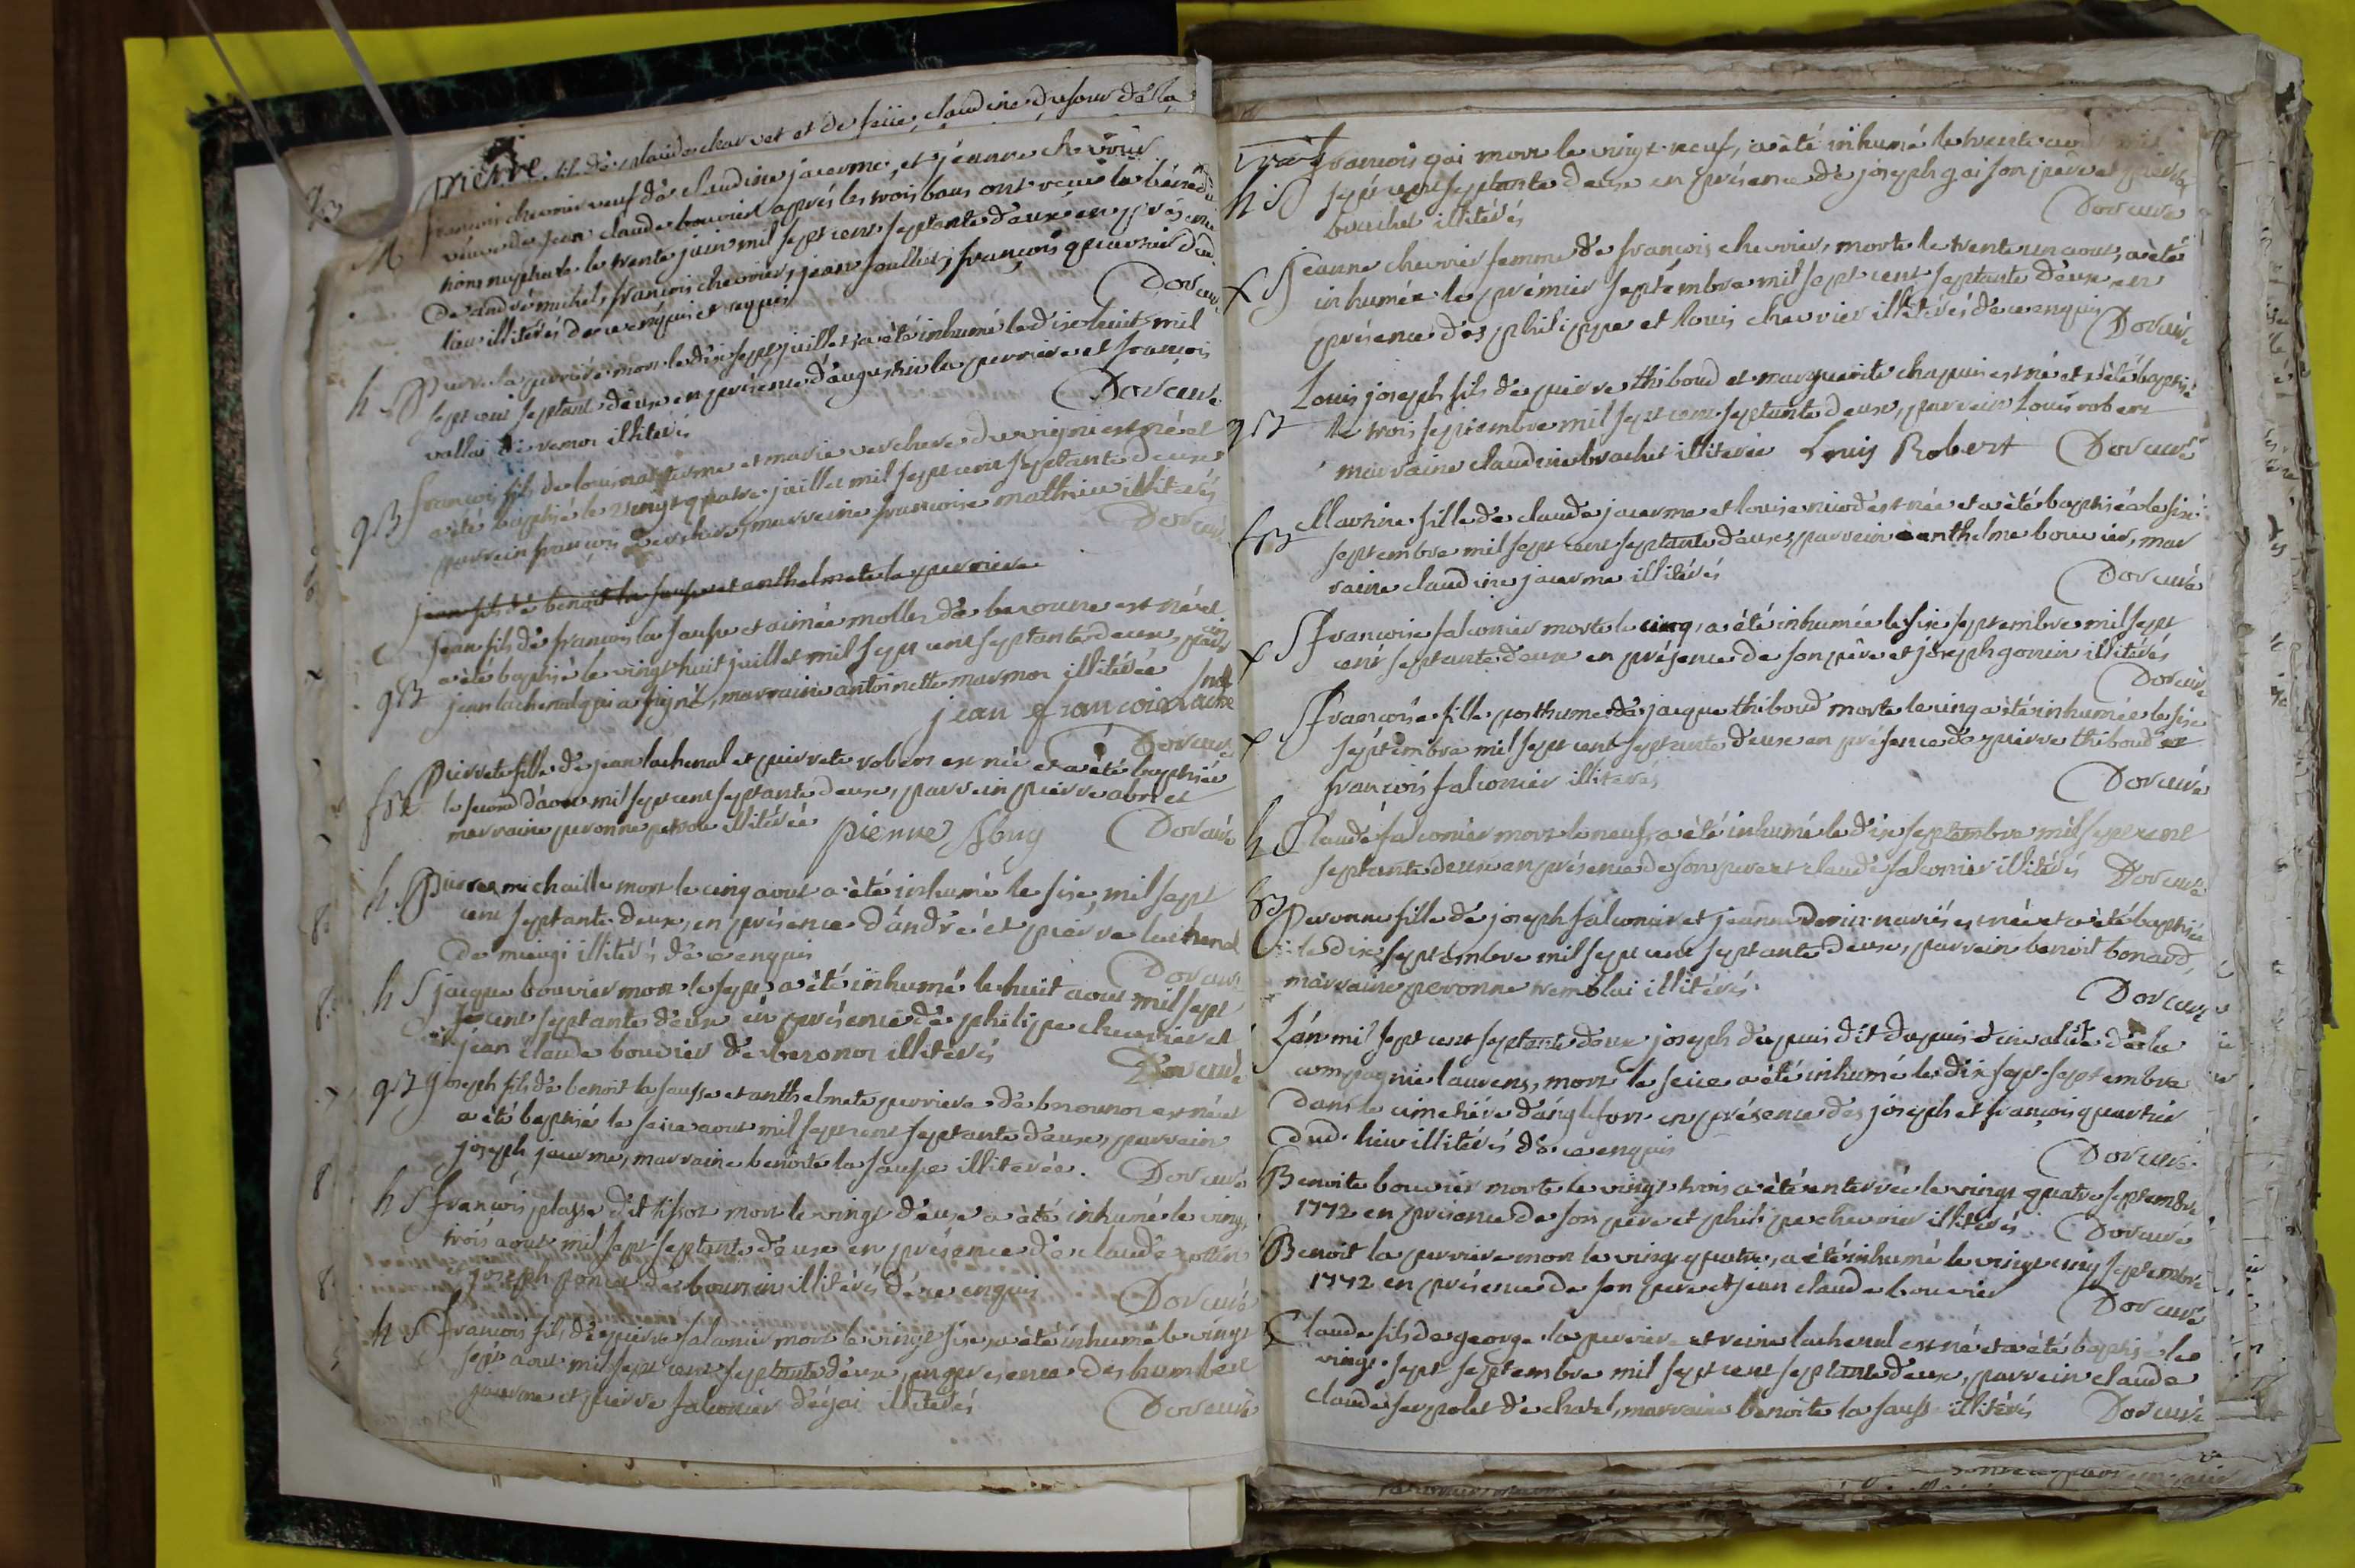 pierre fils de claude charvet et de claudine dufour de la
M françois chevrier veuf de claudine jacerme, et jeanne chevrier
veuve de jean claude bouvier après les trois bans ont reçu la bénédic
tion nuptiale le trente juin mil sept cent septante deux en présence
de andré michel, françois chevrier, jean françois dud.
lieu illitérés de ce enquis et requis
Dor curé
h S pierre la perrière mort le dix sept juillet a été inhumé le dix huit mil
sept cent septante deux en présence d'augustin la perriere et françois
illitérés
Dor curé
gB françois fils de louis et marie verchere est né et
a été baptisé le vingt quatre juillet mil sept cent septante deux
parrein françois verchere, marreine françoise mathieu illitérés
Dor curé
jean fils de benoit la sausse et anthelmete la perriere
gB jean fils de françois la sausse et aimée mollex de beronne est né et
a été baptisé le vingt huit juillet mil sept cent septante deux, parr
jean lachenal qui a signé, marraine antoinette marmor illitérée
jean françois lache
nal
Dor curé
fB Pierrete fille de jean lachenal et pierrete robert est née et a été baptisée
le second d'aout mil sept cent septante deux, parrein pierre et
marraine peronne illitérée pierre Dor curé
h S Pierre michaille mort le cinq aout a été inhumé le sixe mil sept
cent septante deux, en présence d'andré et pierre lachenal
de illitérés de ce enquis
Dor curé
h S jacque bouvier mort le sept a été inhumé le huit aout mil sept
cent septante deux en présence de philipe chevrier et
jean claude bouvier de beronor illitérés
Dor curé
gB joseph fils de benoit la sausse et anthelmete perriere de beronor est né et
a été baptisé le seize aout mil sept cent septante deux, parrein
joseph jacerme, marraine benoite la sausse illitérés. Dor curé
h S françois plasse dit tissot mort le vingt deux a été inhumé le vingt
trois aout mil sept septante deux en présence de claude rottin
joseph ponce de illitérés de ce enquis
Dor curé
h S françois fils de pierre falconier mort le vingt six, a été inhumé le vingt
sept aout mil sept cent septante deux, en présence des humbert
jacerme et pierre falconier illitérés
Dor curé
françois gai mort le vingt neuf, a été inhumé le trente aout mil
h S sept cent septante deux en présence de joseph gai son père et pierre
brachet illitérés
Dor curé
f S jeanne chevrier femme de françois chevrier, morte le trente un aout, a été
inhumée le prémier septembre mil sept cent septante deux en
présence des philippe et louis chevrier illitérés de ce enquis
Dor curé
Louis joseph fils de pierre thiboud et marguerite chapuis est né et a été baptisé
gB le trois septembre mil sept cent septante deux, parrein louis robert
marraine claudine brachet illiterée Louis Robert Dor curé
fB Marine fille de claude jacerme et louise est née et a été baptisée le six
septembre mil sept cent septante deux, parrein anthelme bouvier, mar
raine claudine jacerme illitérés
Dor curé
f S françoise falconier morte le cinq, a été inhumée le six septembre mil sept
cent septante deux en présence de son père et joseph gonin illitérés
Dor curé
f S françoise fille posthume de jacque thiboud morte le cinq a été inhumée le six
septembre mil sept cent septante deux en présence de pierre thiboud et
françois falconier illiterés
Dor curé
h S Claude falconier mort le neuf, a été inhumé le dix septembre mil sept cent
septante deux en présence de son pere et claude falconier illitérés Dor curé
fB Peronne fille de joseph falconier et jeanne mariés est née et a été baptisée
le dix septembre mil sept cent septante deux, parrein benoit bonard,
marraine peronne tremblai illitérés.
Dor curé
L'an mil sept cent septante deux joseph dupuis dit dupuis invalide de la
compagnie laurens, mort le seize a été inhumé le dix sept septembre
dans le cimetière d'anglefort en présence des joseph et françois quartier
dud. lieu illitérés de ce enquis
Dor curé
Benoite bouvier morte le vingt trois a été enterrée le vingt quatre septembre
1772 en présence de son père et philipe chevrier illitérés Dor curé
Benoit la perriere mort le vingt quatre, a été inhumé le vingt cinq septembre
1772 en présence de son pere et jean claude bouvier
Dor curé
Claude fils de george la perriere et reine lachenal est né et a été baptisé le
vingt sept septembre mil sept cent septante deux, parrein claude
claude serpolet de chatel, marraine benoite la sausse illitérés Dor curé